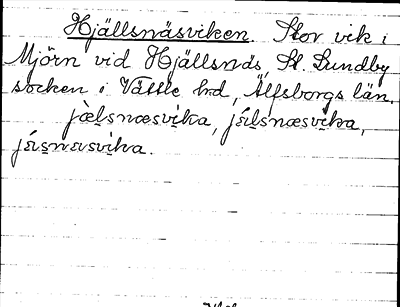 Hjällsnäsviken. Stor vik i
Mjörn vid Hjällsnäs, St. Lundby
socken i Vättle hd, Älfsborgs län.
jæ̀lsnæsvika, jǽlsnæsvika,